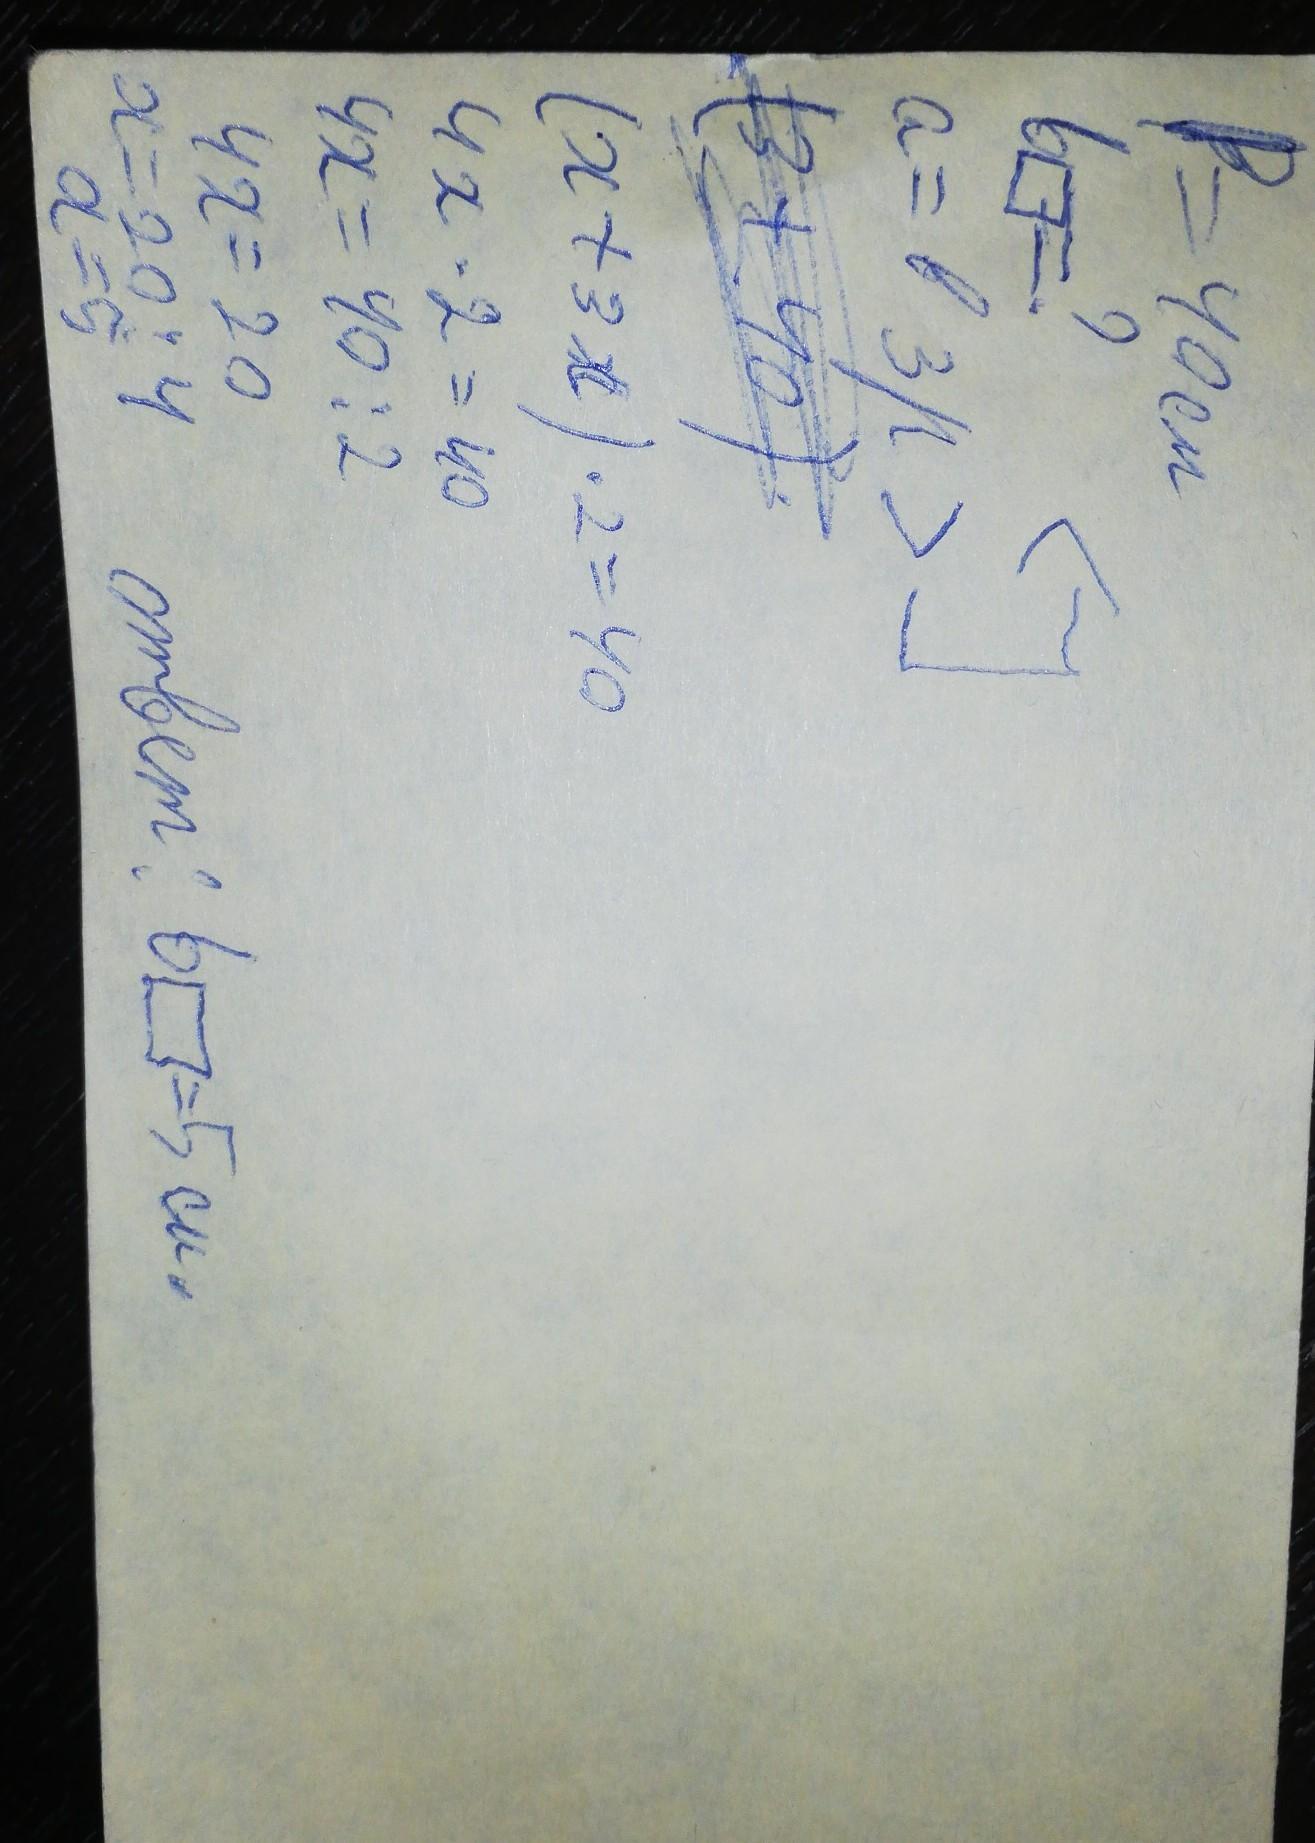 P = 40 см
b▭ = ?
a = в 3р. >
(x + 3x) · 2 = 40
4x · 2 = 40
4x = 40 : 2
4x = 20
x = 20 : 4
x = 5
ответ: b▭ = 5 см.